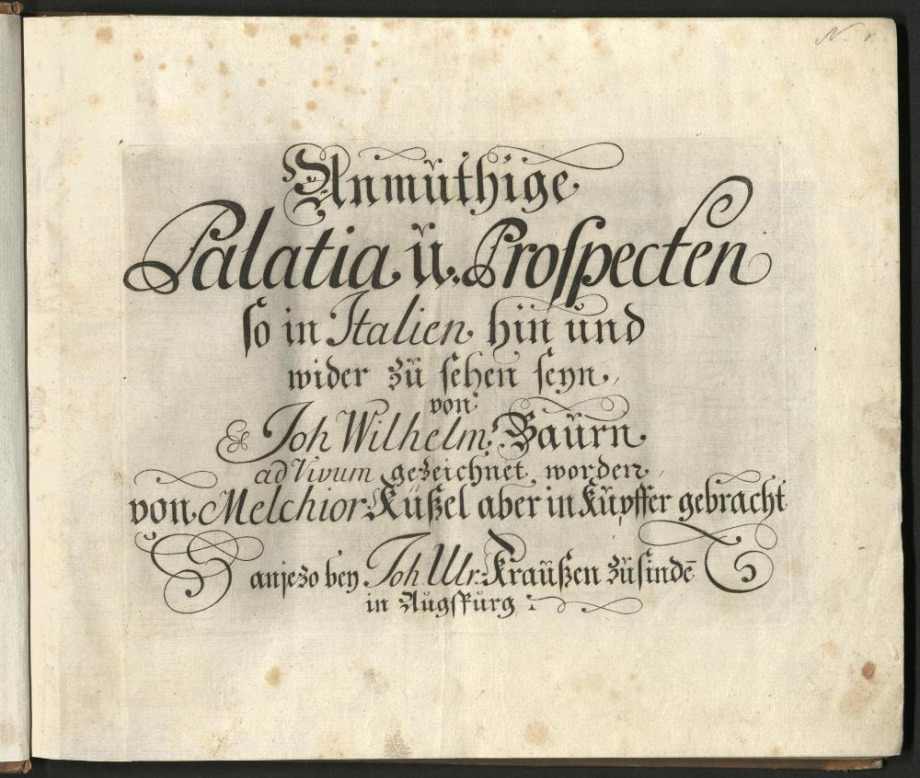 N. 1.
Anmüthige
Palatia ü. Proſpecten
ſo in Italien hin und
wider zü ſehen ſeyn,
von
Joh Wilhelm Baürn
ad Vivum gezeichnet worden,
von Melchior Küßel aber in Küpffer gebracht
anjezo bey Joh. Ulr. Kraüßen züfindē
in Aŭgſpŭrg